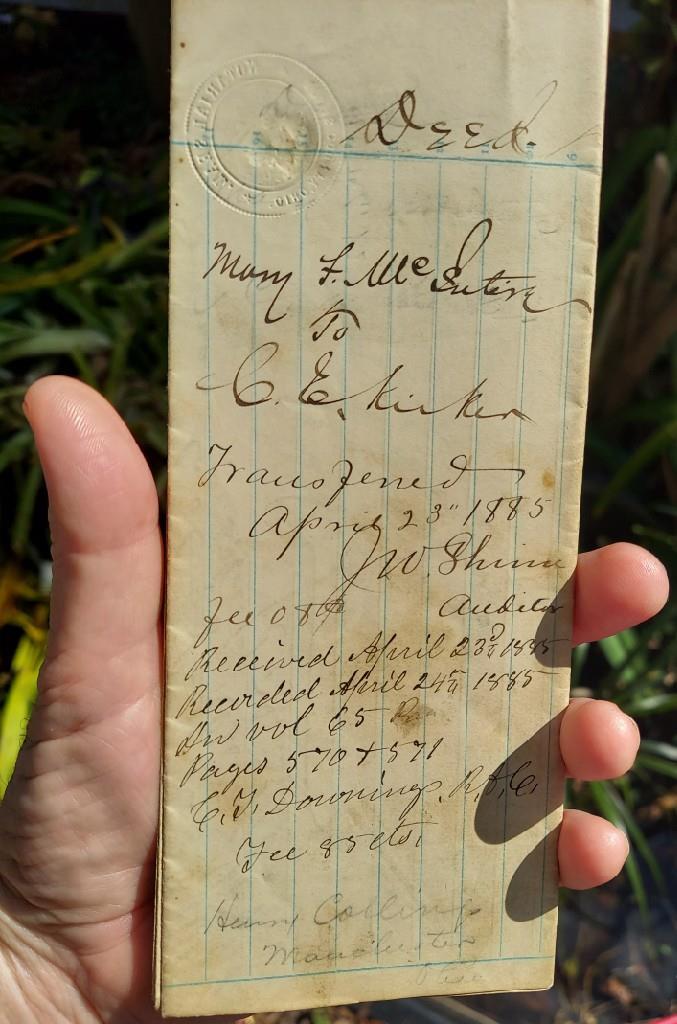 Deed.
Mary F. McIntire
To
C. E. Kirker
Transferred
April 23" 1885
J W. Shinn
Auditor
fee 08
Received April 23d 1885
Recorded April 24th 1885
In vol 65
Pages 570 + 571
C. F. Downing. R. A. C.
Fee 85 cts.
Henry Collings
Manchester